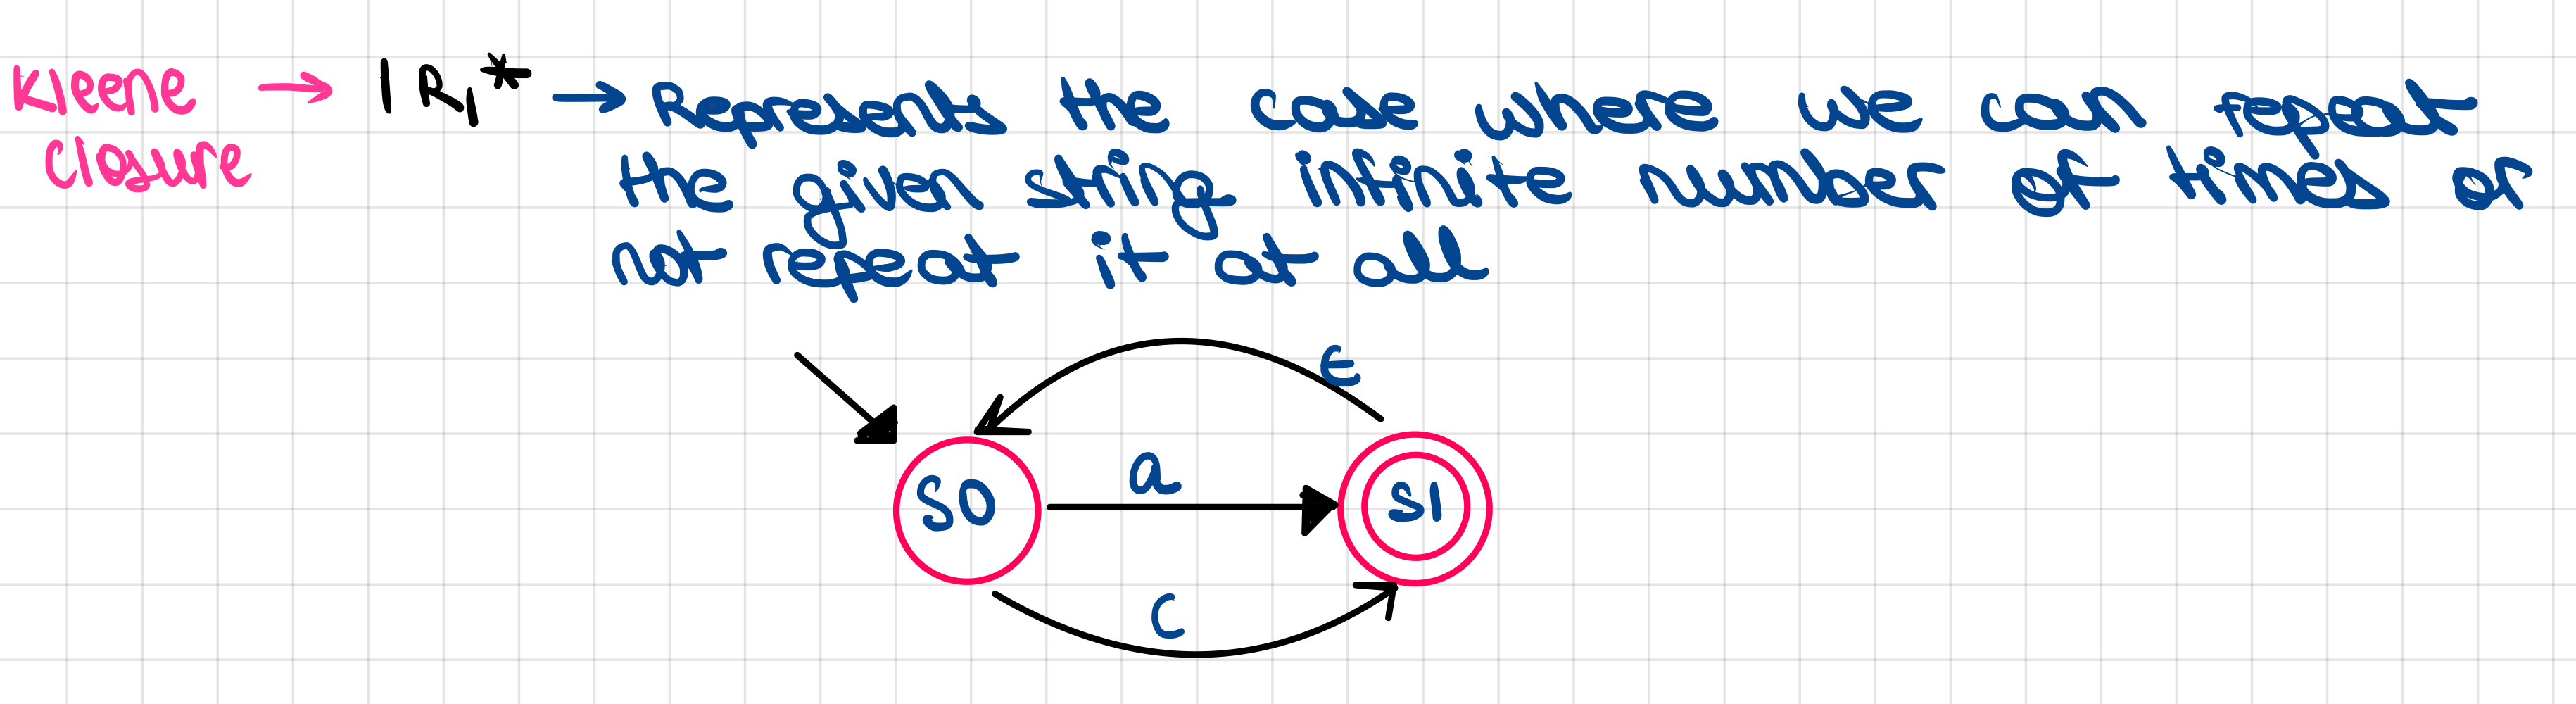 Kleene → | R₁* → Represents the case where we can repeat
closure
the given string infinite number of times or
not repeat it at all
ε
a
S0
S1
C